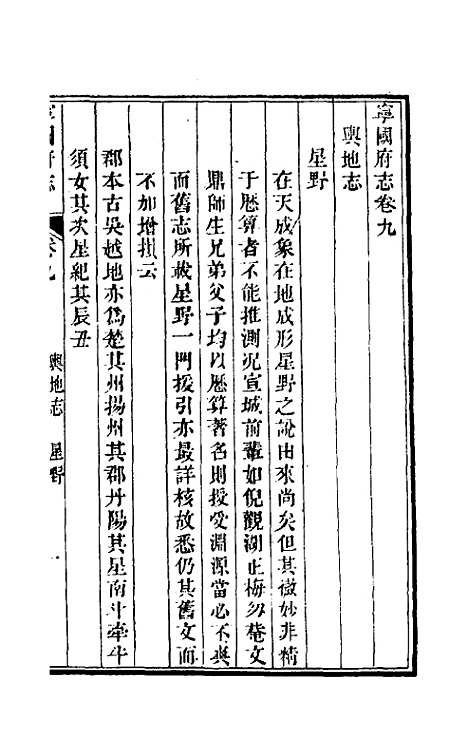 寧國府志卷九
輿地志
星野
在天成象在地成形星野之說由來尚矣但其微妙非精
于歴算者不能推測況宣城前輩如倪觀湖正梅勿菴文
鼎師生兄弟父子均以歴算著名則授受淵源當必不與
而舊志所載星野一門援引亦最詳核故悉仍其舊文而
不加增損云
郡本古吳越地亦爲楚其州揚州其郡丹陽其星南斗牽牛
須女其次星紀其辰丑
寧國府志 卷九 輿地志 星野 一